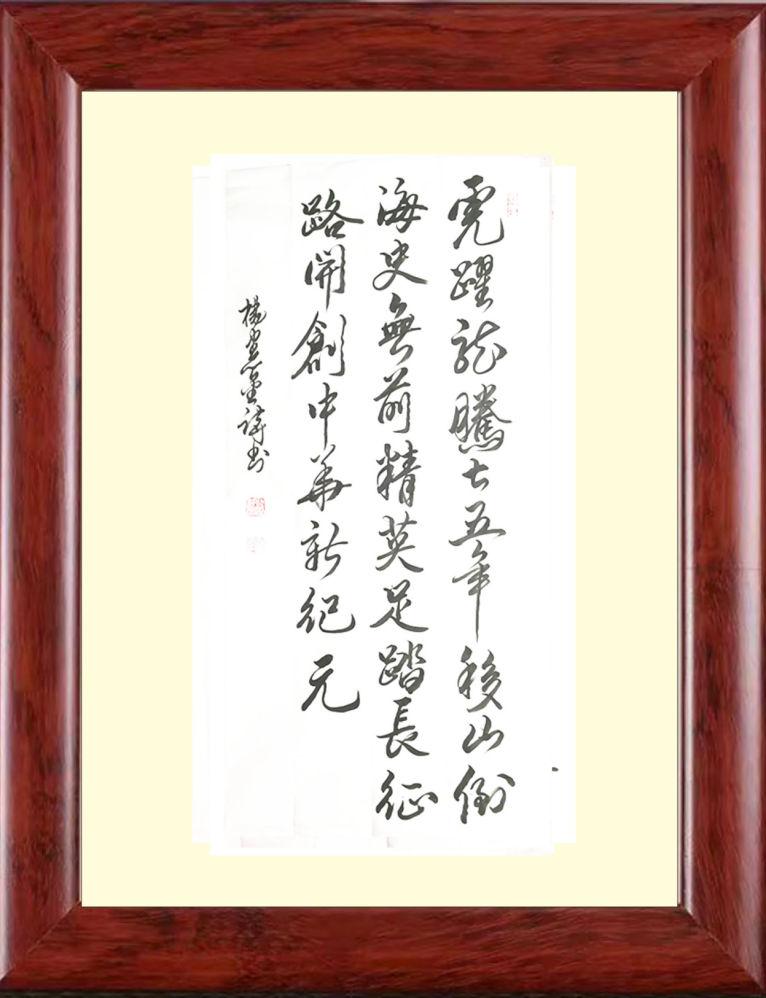 虎躍龙騰七五年移山倒
海史無前精英足踏長征
路開創中華新纪元
楊惠童詩书